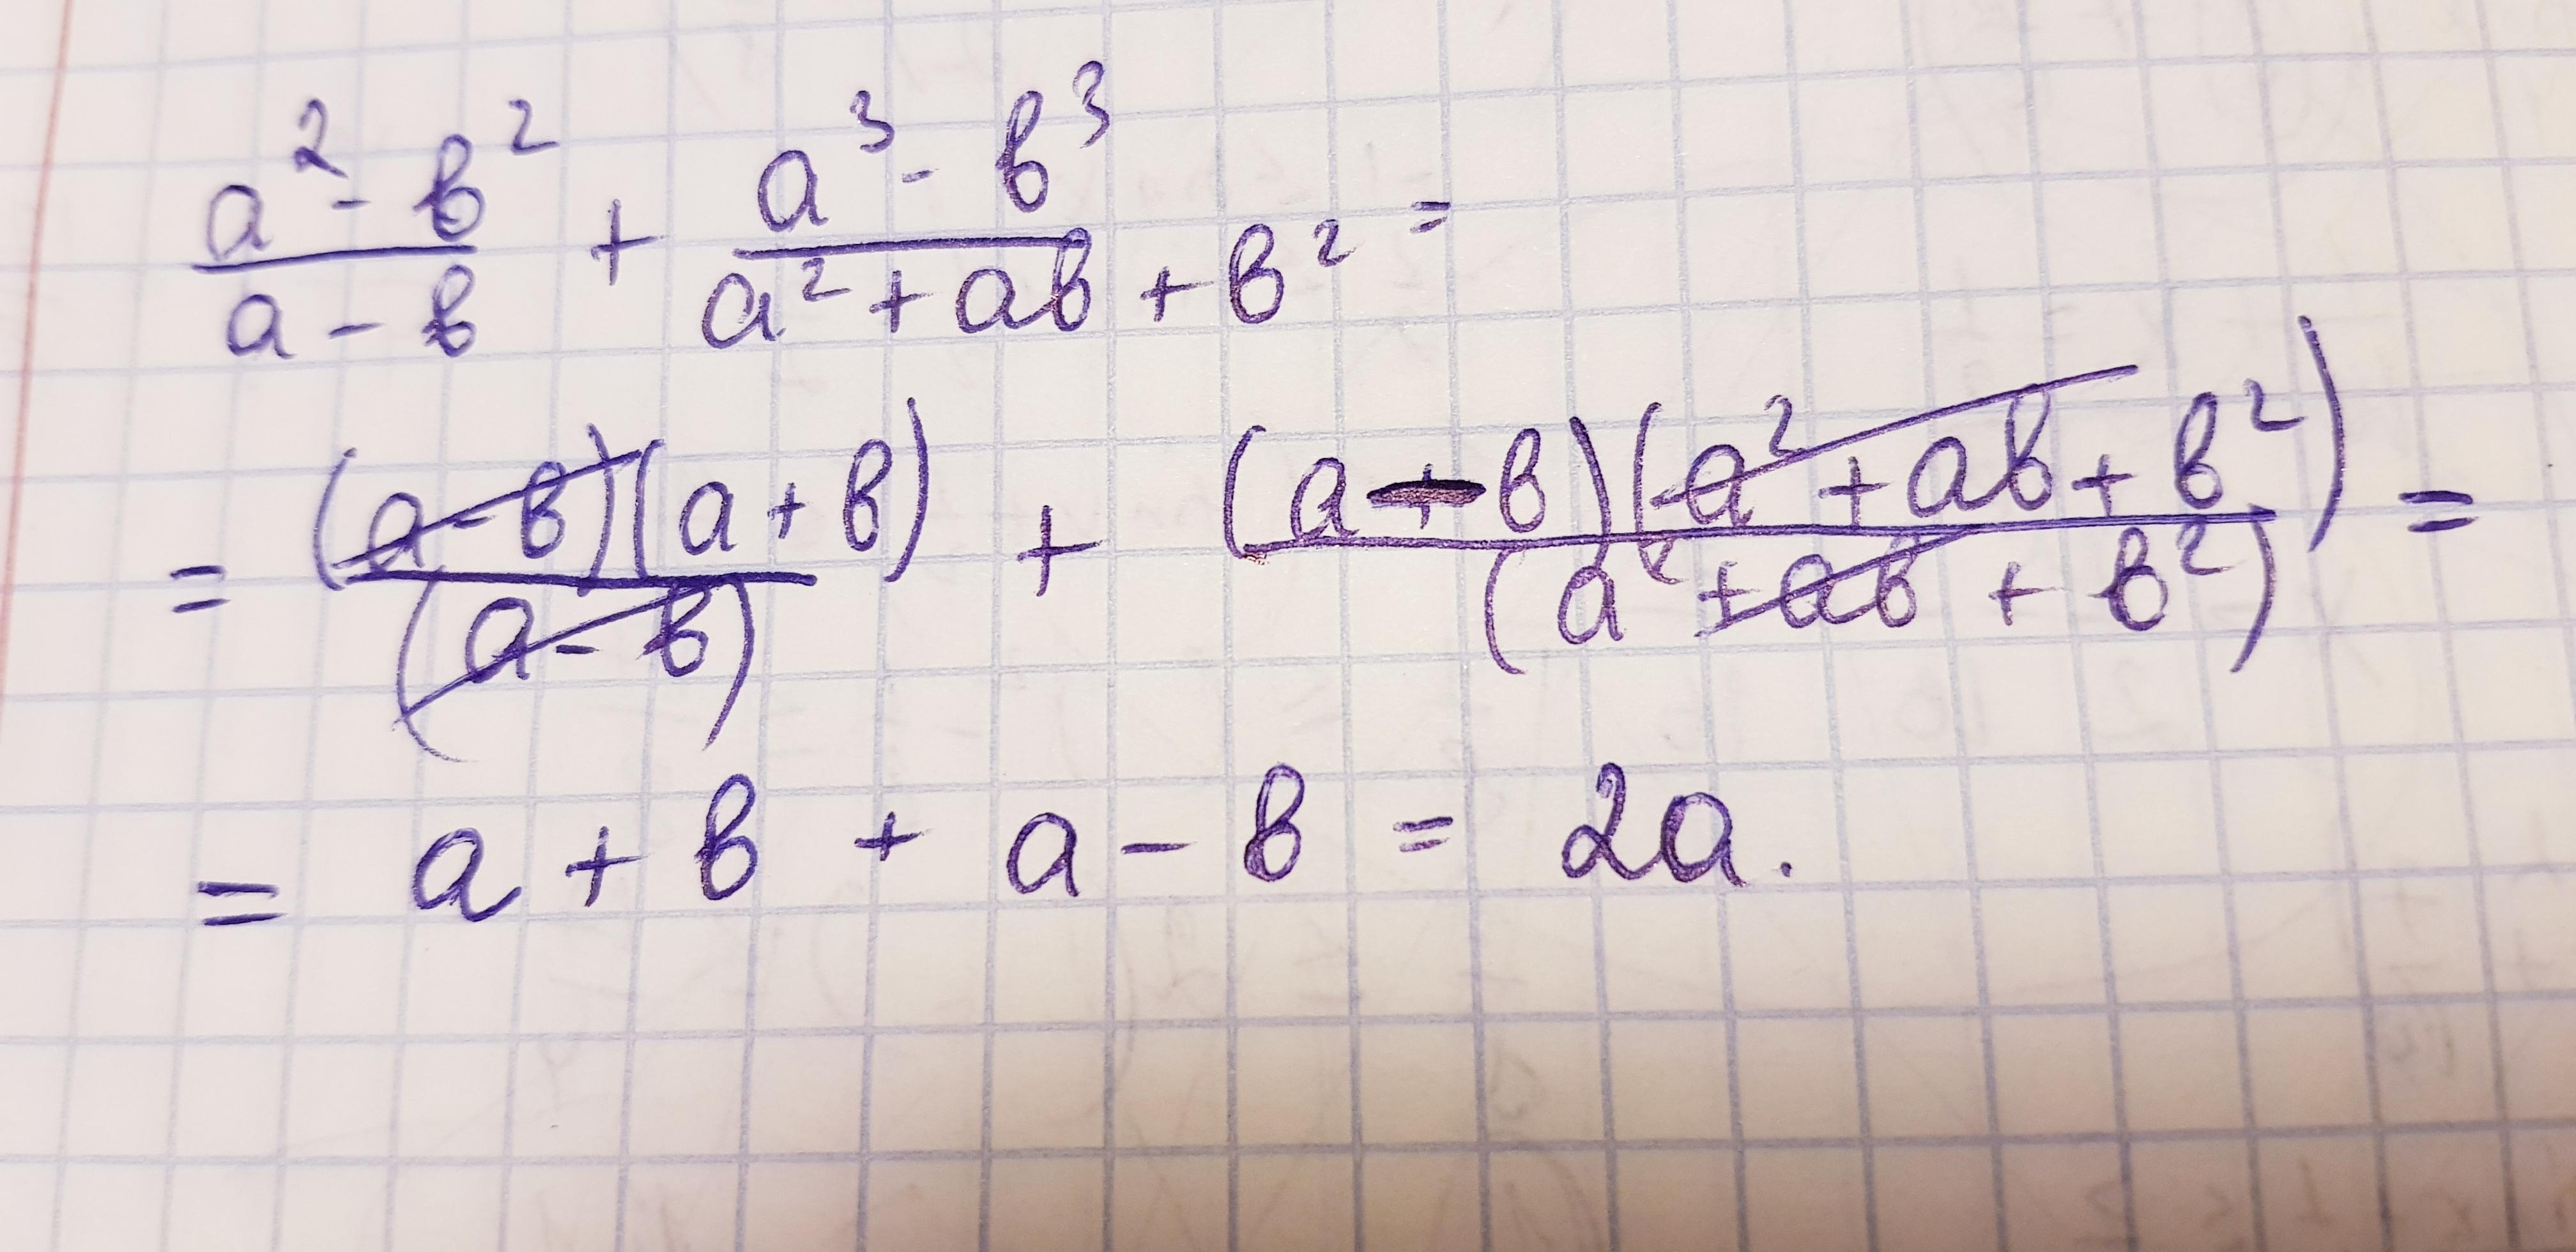 (a² - b²)/(a - b) + (a³ - b³)/(a² + ab + b²) =
= ((a - b)(a + b))/((a - b)) + ((a - b)(a² + ab + b²))/((a² + ab + b²)) =
= a + b + a - b = 2a.